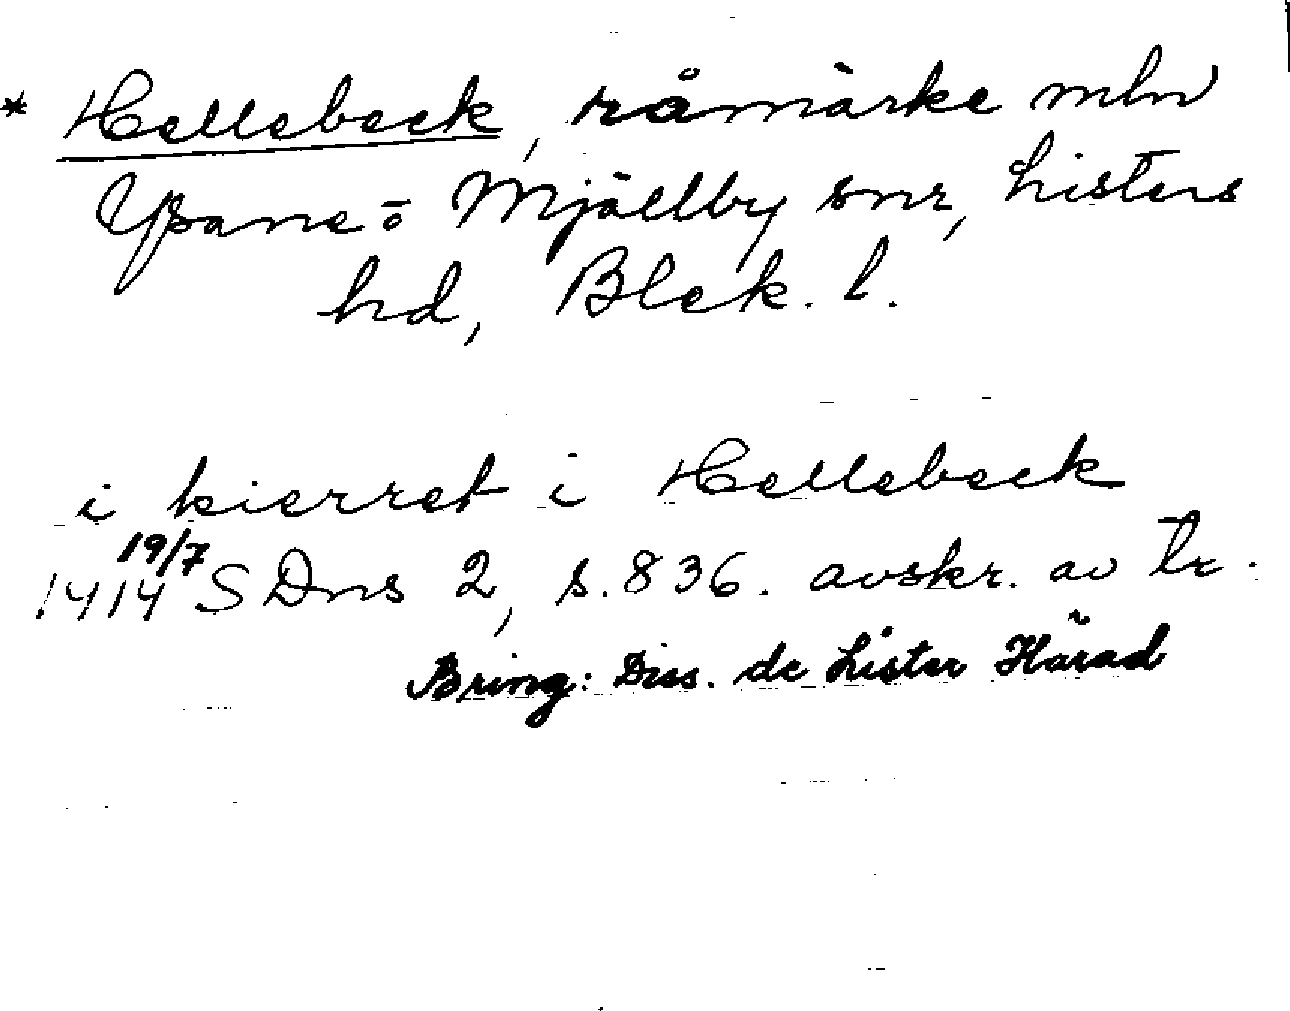 * Hellebeek, råmärke mln
Ysane o Mjällby snr, Listers
hd, Blek. l.
i kierret i Hellebeek
19/7
1414 SDns 2, s. 836. avskr. av tr.
Bring: Diss. de Lister Härad